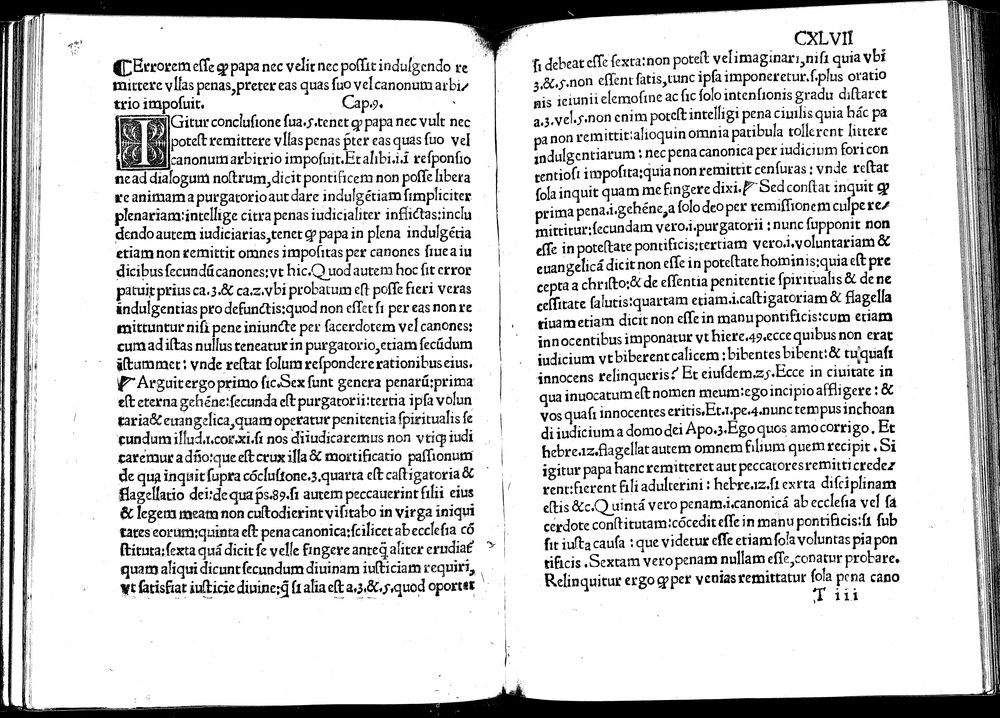 Errorem esse ꝙ papa nec velit nec possit indulgendo re
mittere vllas penas, preter eas quas suo vel canonum arbi/
trio imposuit. Cap.9.
IGitur conclusione sua.5.tenet ꝙ papa nec vult nec
potest remittere vllas penas p̄ter eas quas suo vel
canonum arbitrio imposuit. Et alibi.i.ī responsio
ne ad dialogum nostrum, dicit pontificem non posse libera
re animam a purgatorio aut dare indulgētiam simpliciter
plenariam: intellige citra penas iudicialiter inflictas: inclu
dendo autem iudiciarias, tenet ꝙ papa in plena indulgētia
etiam non remittit omnes impositas per canones siue a iu
dicibus secundū canones: vt hic. Quod autem hoc sit error
patuit prius ca.3.& ca.2.vbi probatum est posse fieri veras
indulgentias pro defunctis: quod non esset si per eas non re
mittuntur nisi pene iniuncte per sacerdotem vel canones:
cum ad istas nullus teneatur in purgatorio, etiam secūdum
istummet: vnde restat solum respondere rationibus eius.
Arguit ergo primo sic. Sex sunt genera penarū: prima
est eterna gehēne: secunda est purgatorii: tertia ipsa volun
taria & euangelica, quam operatur penitentia spiritualis se
cundum illud.1.cor.xi.si nos diiudicaremus non vtiꝗ iudi
caremur a dño: que est crux illa & mortificatio passionum
de qua inquit supra cōclusione.3.quarta est castigatoria &
flagellatio dei: de qua ps.89.si autem peccauerint filii eius
& legem meam non custodierint visitabo in virga iniqui
tates eorum: quinta est pena canonica: scilicet ab ecclesia cō
stituta: sexta quā dicit se velle fingere anteꝗ aliter erudiat̄
quam aliqui dicunt secundum diuinam iusticiam requiri,
vt satisfiat iusticie diuine: q̄ si alia est a.3.&.5.quod oportet
CXLVII
si debeat esse sexta: non potest vel imaginari, nisi quia vbi
3.&.5.non essent satis, tunc ipsa imponeretur.s.plus oratio
nis ieiunii elemosine ac sic solo intensionis gradu distaret
a.3.vel.5.non enim potest intelligi pena ciuilis quia hāc pa
pa non remittit: alioquin omnia patibula tollerent littere
indulgentiarum: nec pena canonica per iudicium fori con
tentiosi imposita: quia non remittit censuras: vnde restat
sola inquit quam me fingere dixi. Sed constat inquit ꝙ
prima pena.i.gehēne, a solo deo per remissionem culpe re/
mittitur: secundam vero.i.purgatorii: nunc supponit non
esse in potestate pontificis: tertiam vero.i.voluntariam &
euangelicā dicit non esse in potestate hominis: quia est pre
cepta a christo: & de essentia penitentie spiritualis & de ne
cessitate salutis: quartam etiam.i.castigatoriam & flagella
tiuam etiam dicit non esse in manu pontificis: cum etiam
innocentibus imponatur vt hiere.49.ecce quibus non erat
iudicium vt biberent calicem: bibentes bibent: & tu quasi
innocens relinqueris? Et eiusdem.25.Ecce in ciuitate in
qua inuocatum est nomen meum: ego incipio affligere: &
vos quasi innocentes eritis. Et.1.pe.4.nunc tempus inchoan
di iudicium a domo dei Apo.3.Ego quos amo corrigo. Et
hebre.12.flagellat autem omnem filium quem recipit. Si
igitur papa hanc remitteret aut peccatores remitti crede/
rent: fierent fili adulterini: hebre.12.si extra disciplinam
estis &c. Quintā vero penam.i.canonicā ab ecclesia vel sa
cerdote constitutam: cōcedit esse in manu pontificis: si sub
sit iusta causa: que videtur esse etiam sola voluntas pia pon
tificis. Sextam vero penam nullam esse, conatur probare.
Relinquitur ergo ꝙ per venias remittatur sola pena cano
T iii